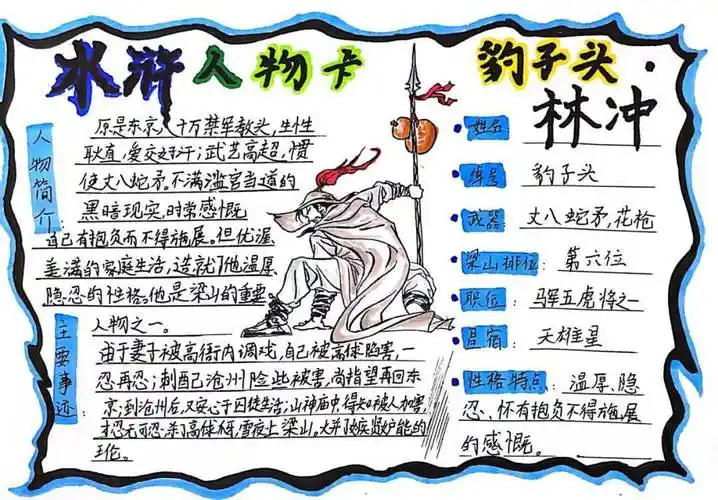 水浒人物卡
人物简介:
原是东京八十万禁军教头,生性
耿直,爱交好汗;武艺高超,惯
使丈八蛇矛。不满滥官当道的
黑暗现实,时常感慨
自己有抱负而不得施展。但优渥
美满的家庭生活,造就了他温厚
隐忍的性格。他是梁山的重要
人物之一。
主要事迹:
由于妻子被高衙内调戏,自己被高俅陷害,一
忍再忍;刺配沧州险些被害,尚指望再回东
京;到沧州后,又安心于囚徒生活;山神庙中,得知被人加害,
才忍无可忍,杀了高俅,雪夜上梁山。火并了嫉贤妒能的
王伦。
豹子头·
姓名: 林冲
绰号: 豹子头
武器: 丈八蛇矛,花枪
梁山排位: 第六位
职位: 马军五虎将之一
星宿: 天雄星
性格特点: 温厚、隐
忍、怀有抱负不得施展
的感慨。